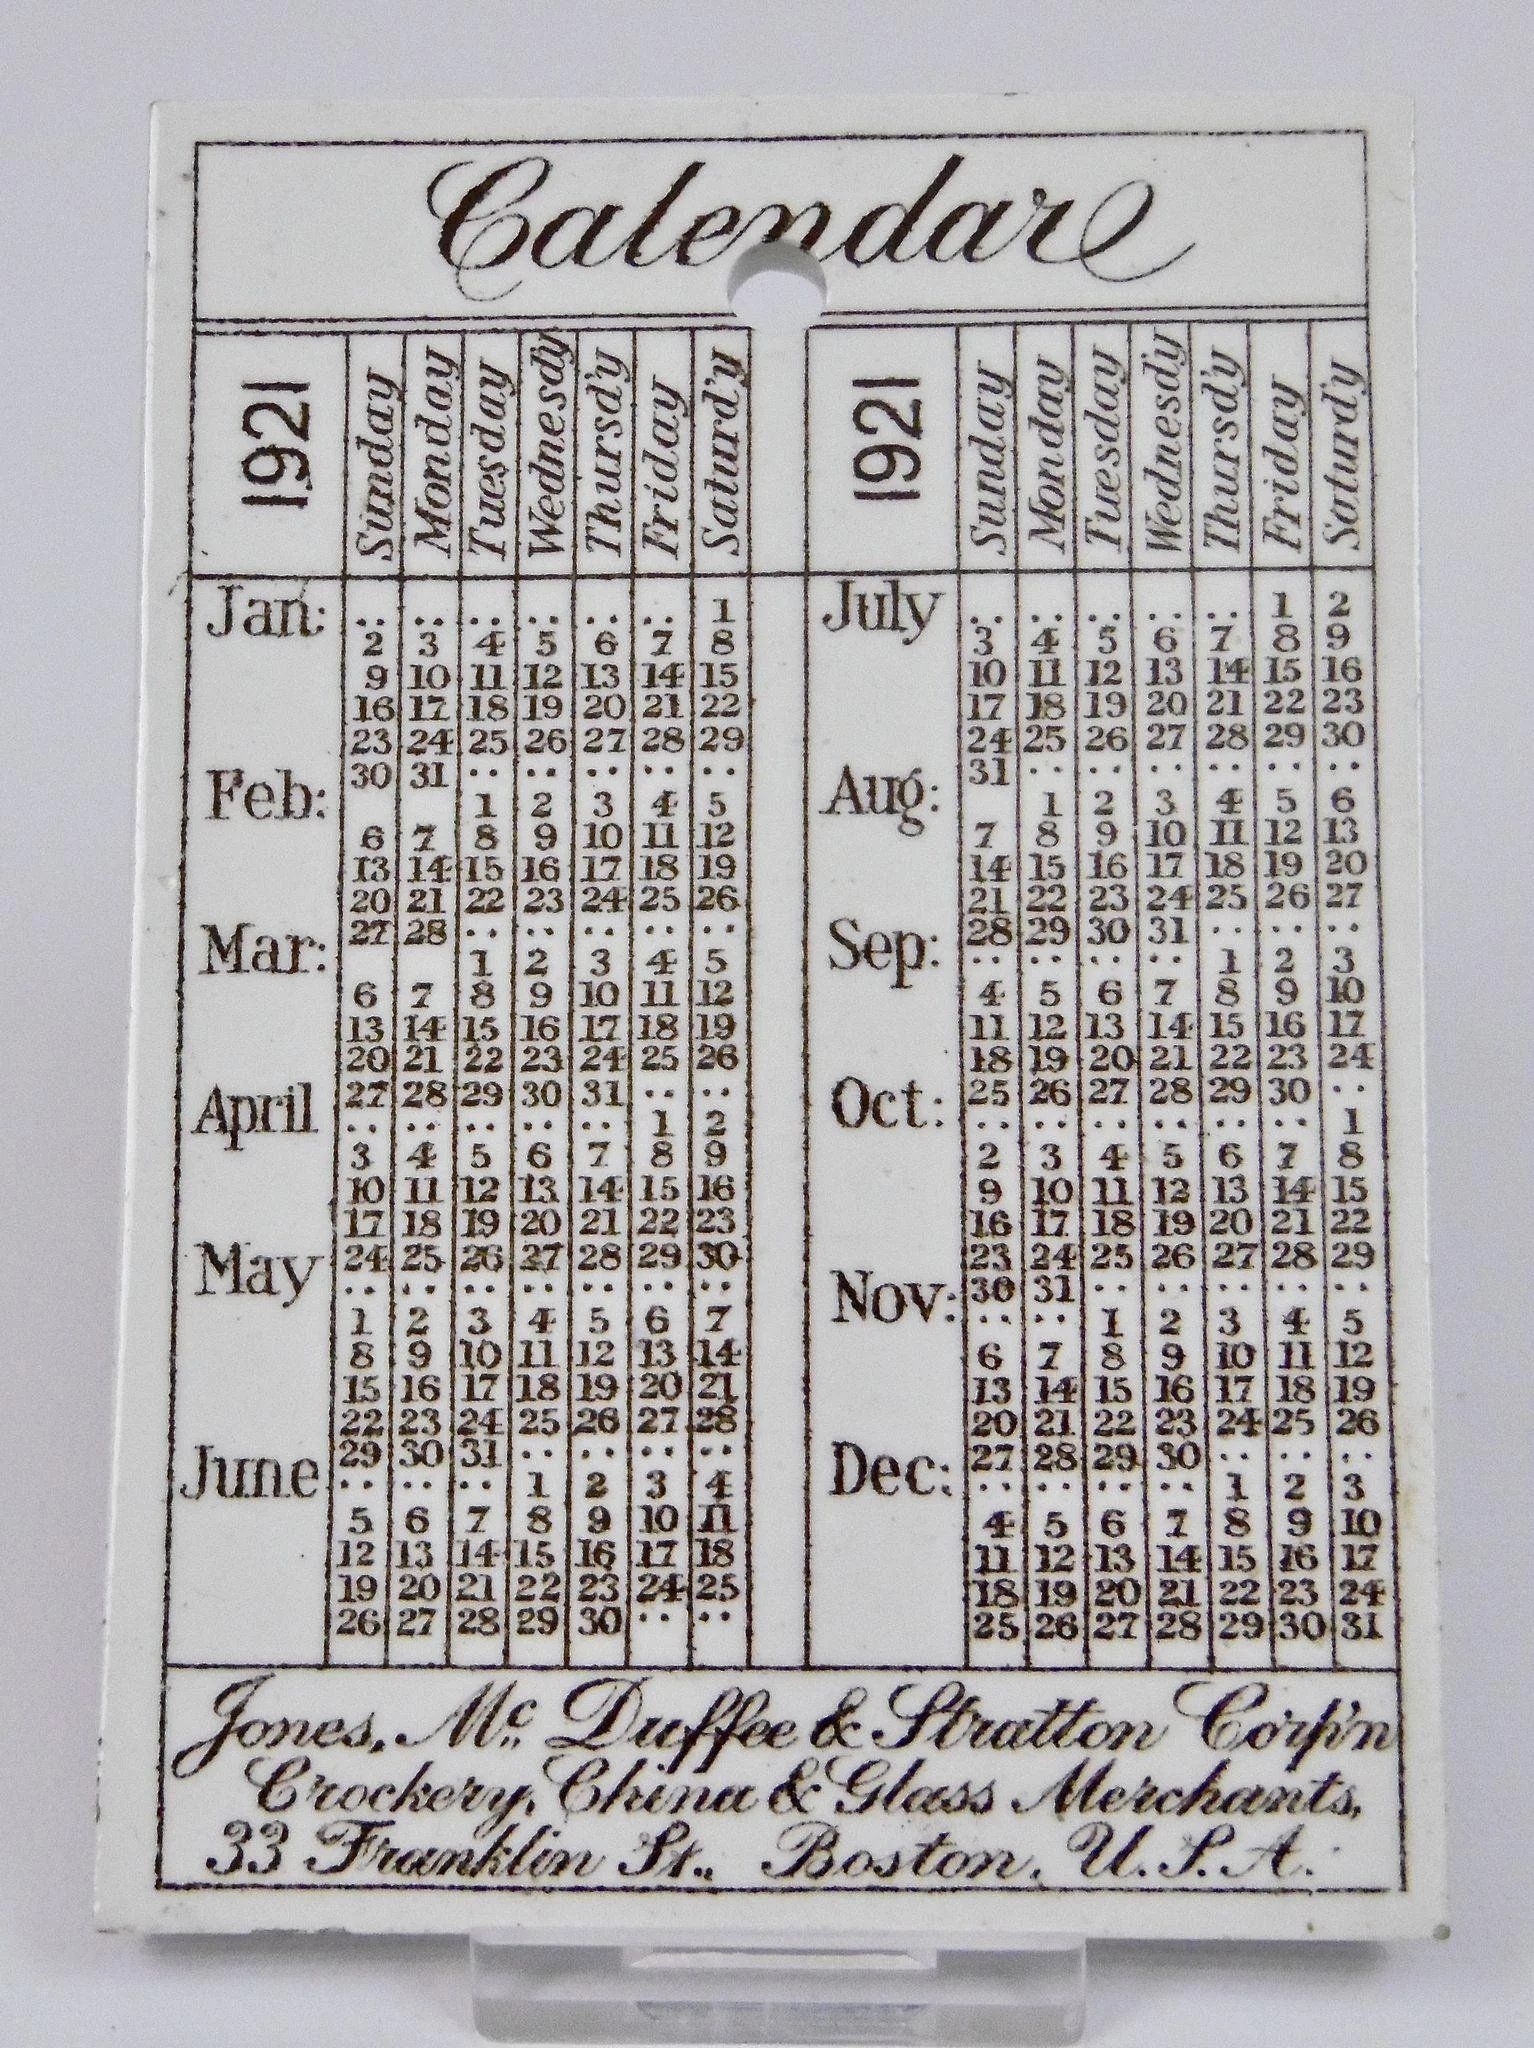 Calendar
1921 Sunday Monday Tuesday Wednesd'y Thursd'y Friday Saturd'y
Jan: .. .. .. .. .. .. 1
2 3 4 5 6 7 8
9 10 11 12 13 14 15
16 17 18 19 20 21 22
23 24 25 26 27 28 29
30 31 .. .. .. .. ..
Feb: 1 2 3 4 5
6 7 8 9 10 11 12
13 14 15 16 17 18 19
20 21 22 23 24 25 26
27 28 .. .. .. .. ..
Mar: 1 2 3 4 5
6 7 8 9 10 11 12
13 14 15 16 17 18 19
20 21 22 23 24 25 26
27 28 29 30 31 .. ..
April .. .. .. .. .. 1 2
3 4 5 6 7 8 9
10 11 12 13 14 15 16
17 18 19 20 21 22 23
24 25 26 27 28 29 30
May .. .. .. .. .. .. ..
1 2 3 4 5 6 7
8 9 10 11 12 13 14
15 16 17 18 19 20 21
22 23 24 25 26 27 28
29 30 31 .. .. .. ..
June .. .. .. 1 2 3 4
5 6 7 8 9 10 11
12 13 14 15 16 17 18
19 20 21 22 23 24 25
26 27 28 29 30 .. ..
1921 Sunday Monday Tuesday Wednesd'y Thursd'y Friday Saturd'y
July .. .. .. .. .. 1 2
3 4 5 6 7 8 9
10 11 12 13 14 15 16
17 18 19 20 21 22 23
24 25 26 27 28 29 30
31 .. .. .. .. .. ..
Aug: 1 2 3 4 5 6
7 8 9 10 11 12 13
14 15 16 17 18 19 20
21 22 23 24 25 26 27
28 29 30 31 .. .. ..
Sep: .. .. .. .. 1 2 3
4 5 6 7 8 9 10
11 12 13 14 15 16 17
18 19 20 21 22 23 24
25 26 27 28 29 30 ..
Oct: .. .. .. .. .. .. 1
2 3 4 5 6 7 8
9 10 11 12 13 14 15
16 17 18 19 20 21 22
23 24 25 26 27 28 29
30 31 .. .. .. .. ..
Nov: .. .. 1 2 3 4 5
6 7 8 9 10 11 12
13 14 15 16 17 18 19
20 21 22 23 24 25 26
27 28 29 30 .. .. ..
Dec: .. .. .. .. 1 2 3
4 5 6 7 8 9 10
11 12 13 14 15 16 17
18 19 20 21 22 23 24
25 26 27 28 29 30 31
Jones, Mc. Duffee & Stratton Corp'n
Crockery, China & Glass Merchants,
33 Franklin St., Boston, U.S.A.